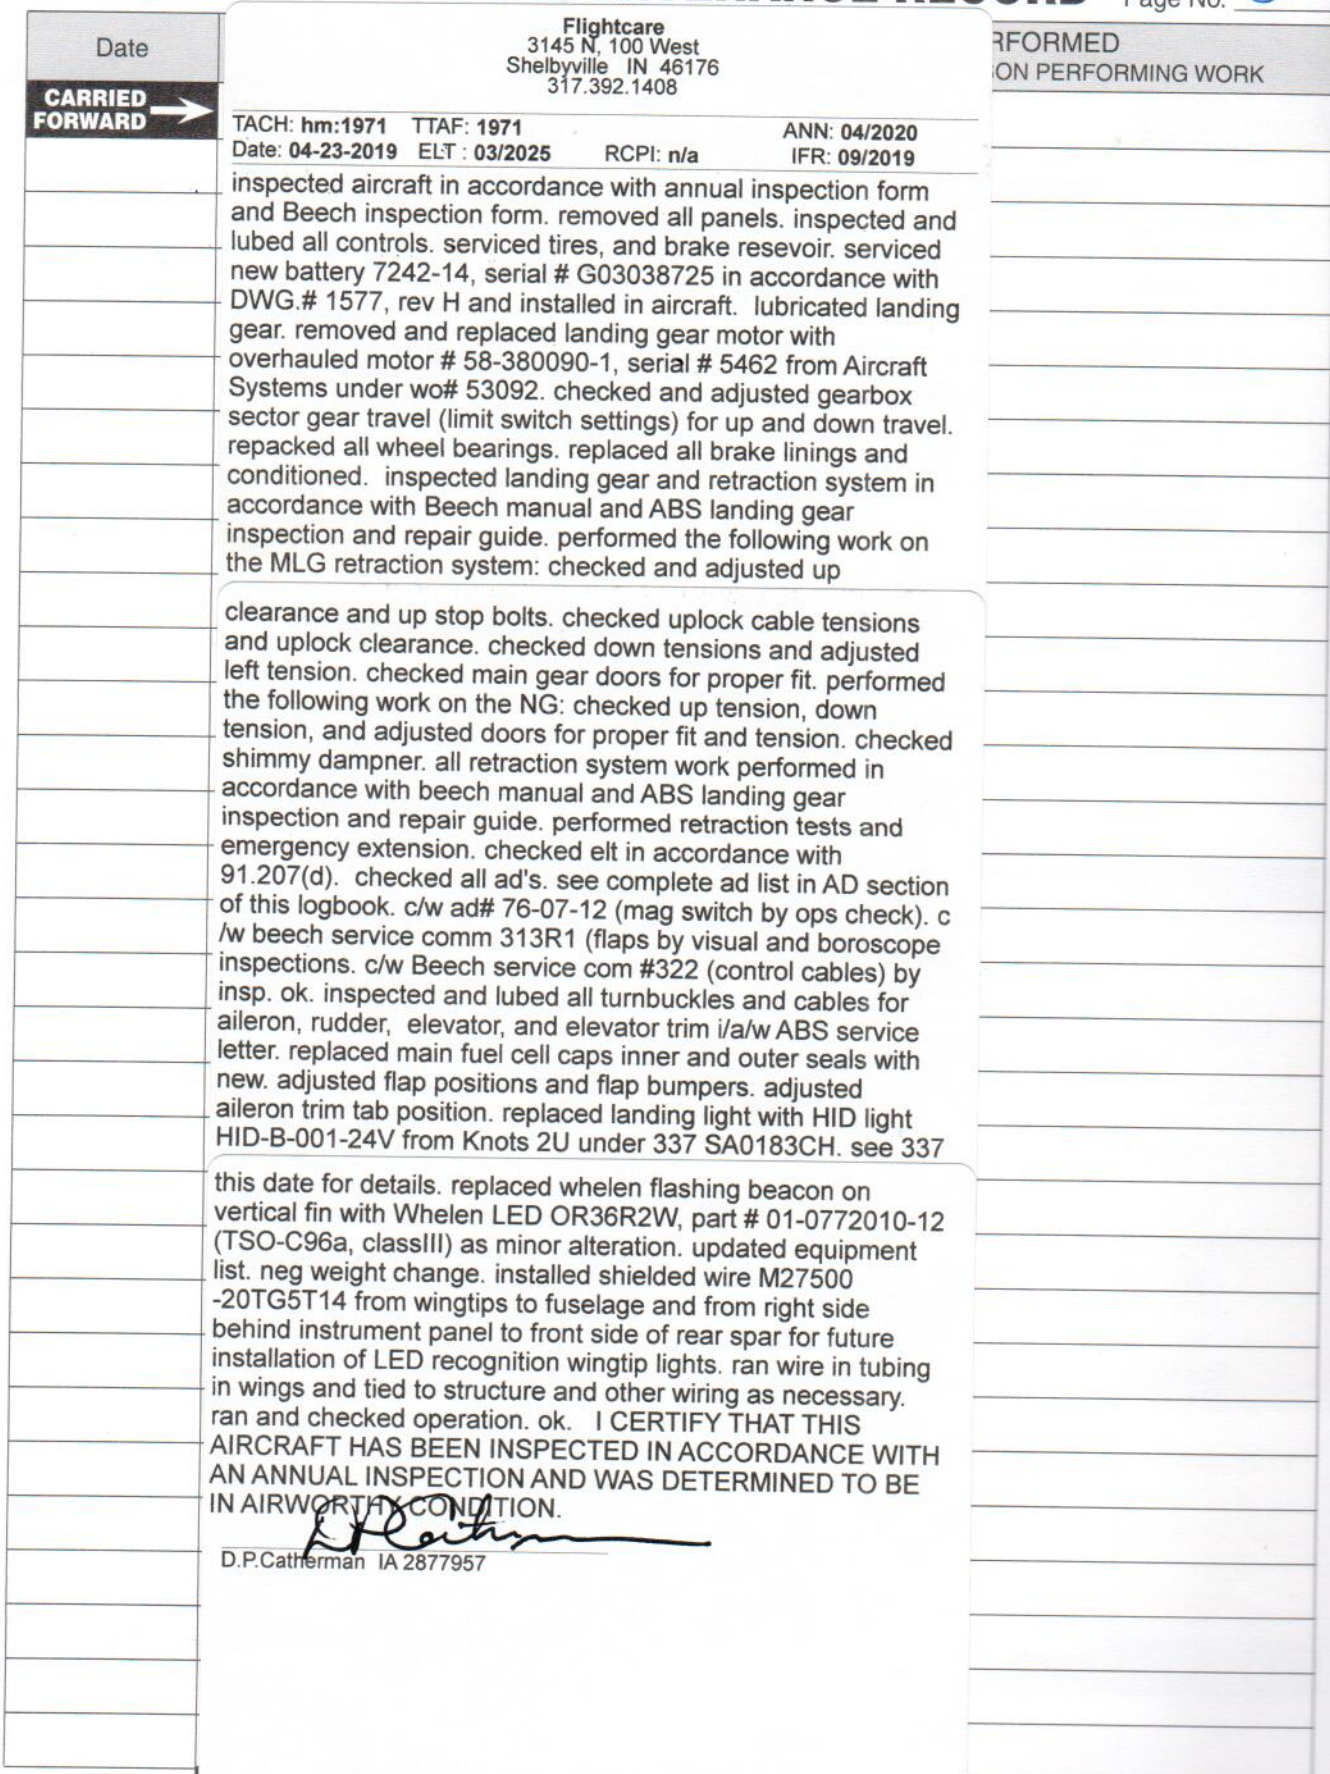 Page No.
Date
RFORMED
ON PERFORMING WORK
CARRIED
FORWARD
Flightcare
3145 N, 100 West
Shelbyville IN 46176
317.392.1408
TACH: hm:1971 TTAF: 1971 ANN: 04/2020
Date: 04-23-2019 ELT : 03/2025 RCPI: n/a IFR: 09/2019
inspected aircraft in accordance with annual inspection form
and Beech inspection form. removed all panels. inspected and
lubed all controls. serviced tires, and brake resevoir. serviced
new battery 7242-14, serial # G03038725 in accordance with
DWG.# 1577, rev H and installed in aircraft. lubricated landing
gear. removed and replaced landing gear motor with
overhauled motor # 58-380090-1, serial # 5462 from Aircraft
Systems under wo# 53092. checked and adjusted gearbox
sector gear travel (limit switch settings) for up and down travel.
repacked all wheel bearings. replaced all brake linings and
conditioned. inspected landing gear and retraction system in
accordance with Beech manual and ABS landing gear
inspection and repair guide. performed the following work on
the MLG retraction system: checked and adjusted up
clearance and up stop bolts. checked uplock cable tensions
and uplock clearance. checked down tensions and adjusted
left tension. checked main gear doors for proper fit. performed
the following work on the NG: checked up tension, down
tension, and adjusted doors for proper fit and tension. checked
shimmy dampner. all retraction system work performed in
accordance with beech manual and ABS landing gear
inspection and repair guide. performed retraction tests and
emergency extension. checked elt in accordance with
91.207(d). checked all ad's. see complete ad list in AD section
of this logbook. c/w ad# 76-07-12 (mag switch by ops check). c
/w beech service comm 313R1 (flaps by visual and boroscope
inspections. c/w Beech service com #322 (control cables) by
insp. ok. inspected and lubed all turnbuckles and cables for
aileron, rudder, elevator, and elevator trim i/a/w ABS service
letter. replaced main fuel cell caps inner and outer seals with
new. adjusted flap positions and flap bumpers. adjusted
aileron trim tab position. replaced landing light with HID light
HID-B-001-24V from Knots 2U under 337 SA0183CH. see 337
this date for details. replaced whelen flashing beacon on
vertical fin with Whelen LED OR36R2W, part # 01-0772010-12
(TSO-C96a, classIII) as minor alteration. updated equipment
list. neg weight change. installed shielded wire M27500
-20TG5T14 from wingtips to fuselage and from right side
behind instrument panel to front side of rear spar for future
installation of LED recognition wingtip lights. ran wire in tubing
in wings and tied to structure and other wiring as necessary.
ran and checked operation. ok. I CERTIFY THAT THIS
AIRCRAFT HAS BEEN INSPECTED IN ACCORDANCE WITH
AN ANNUAL INSPECTION AND WAS DETERMINED TO BE
IN AIRWORTHY CONDITION.
D.P.Catherman IA 2877957